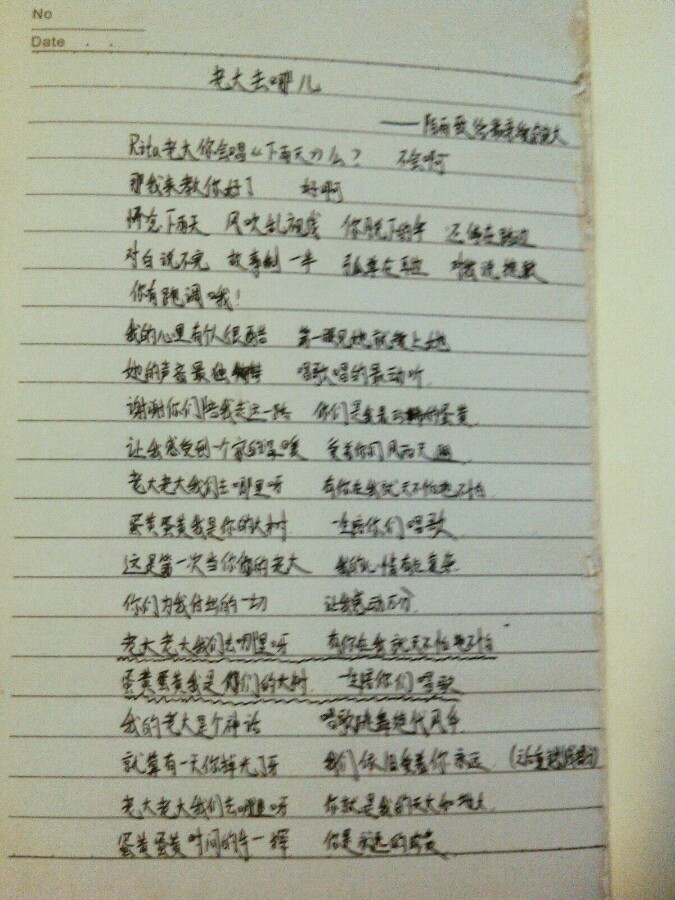 No
Date . .
老大去哪儿
Rita老大你会唱《下雨天》么? 不会啊
那我来教你好了 好啊
怀念下雨天 风吹乱视线 你脱下的伞 还停在路边
对白说不完 故事剩一半
你有跑调哦!
我的心里有个人很酷 第一眼见她就爱上她
她的声音最独特 唱歌唱的最动听
谢谢你们陪我走这一路 你们是我最的蛋黄
让我感受到一个家的温暖 受着你们风雨无阻
老大老大我们去哪里呀 有你在我就天不怕地不怕
蛋黄蛋黄我是你的大树 一直陪你们唱歌
这是第一次当你们的老大 我的心情有点复杂
你们为我付出的一切 让我感动万分
老大老大我们去哪里呀 有你在我就天不怕地不怕
蛋黄蛋黄我是你们的大树 一直陪你们唱歌
我的老大是个神话 唱歌跳舞绝代风华
就算有一天你掉光了牙 我们依旧爱着你永远
老大老大我们去哪里呀 你就是我的天大和地大
蛋黄蛋黄时间的手一挥 你是永远的